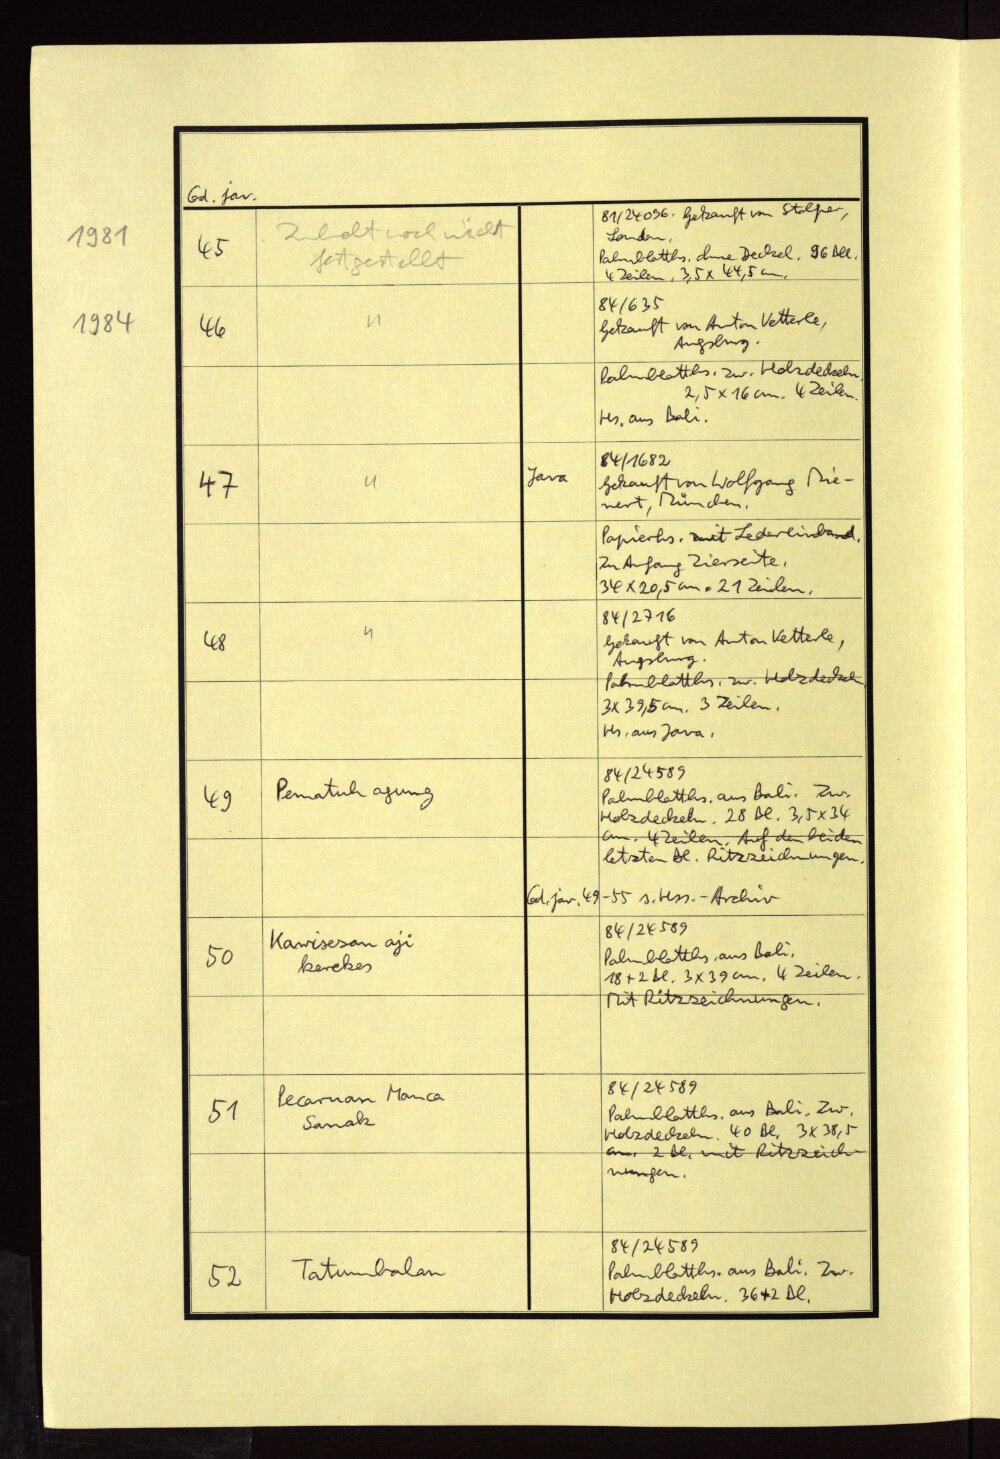 Cod. jav.
1981
45
Inhalt noch nicht
festgestellt
81/24096. Gekauft von Stolper,
London.
Palmblatths. ohne Deckel. 96 Bll.
4 Zeilen. 3,5 x 44,5 cm.
1984
46
"
84/635
Gekauft von Anton Vetterle,
Augsburg.
Palmblatths. zw. Holzdeckeln.
2,5 x 16 cm. 4 Zeilen.
Hs. aus Bali.
47
"
Java
84/1682
Gekauft von Wolfgang Mie-
nert, München.
Papierhs. mit Ledereinband.
Zu Anfang Zierseite.
34 x 20,5 cm. 21 Zeilen.
48
"
84/2716
Gekauft von Anton Vetterle,
Augsburg.
Palmblatths. zw. Holzdeckeln
3 x 39,5 cm. 3 Zeilen.
Hs. aus Java.
49
Pematuh agung
84/24589
Palmblatths. aus Bali. Zw.
Holzdeckeln. 28 Bl. 3,5 x 34
cm. 4 Zeilen. Auf den beiden
letzten Bl. Ritzzeichnungen.
Cod. jav. 49-55 s. Hss.-Archiv
50
Kawisesan aji
kerekes
84/24589
Palmblatths. aus Bali.
18+2 Bl. 3 x 39 cm. 4 Zeilen.
Mit Ritzzeichnungen.
51
Pecaruan Manca
Sanak
84/24589
Palmblatths. aus Bali. Zw.
Holzdeckeln. 40 Bl. 3 x 38,5
cm. 2 Bl. mit Ritzzeich-
nungen.
52
Tatumbalan
84/24589
Palmblatths. aus Bali. Zw.
Holzdeckeln. 36+2 Bl.